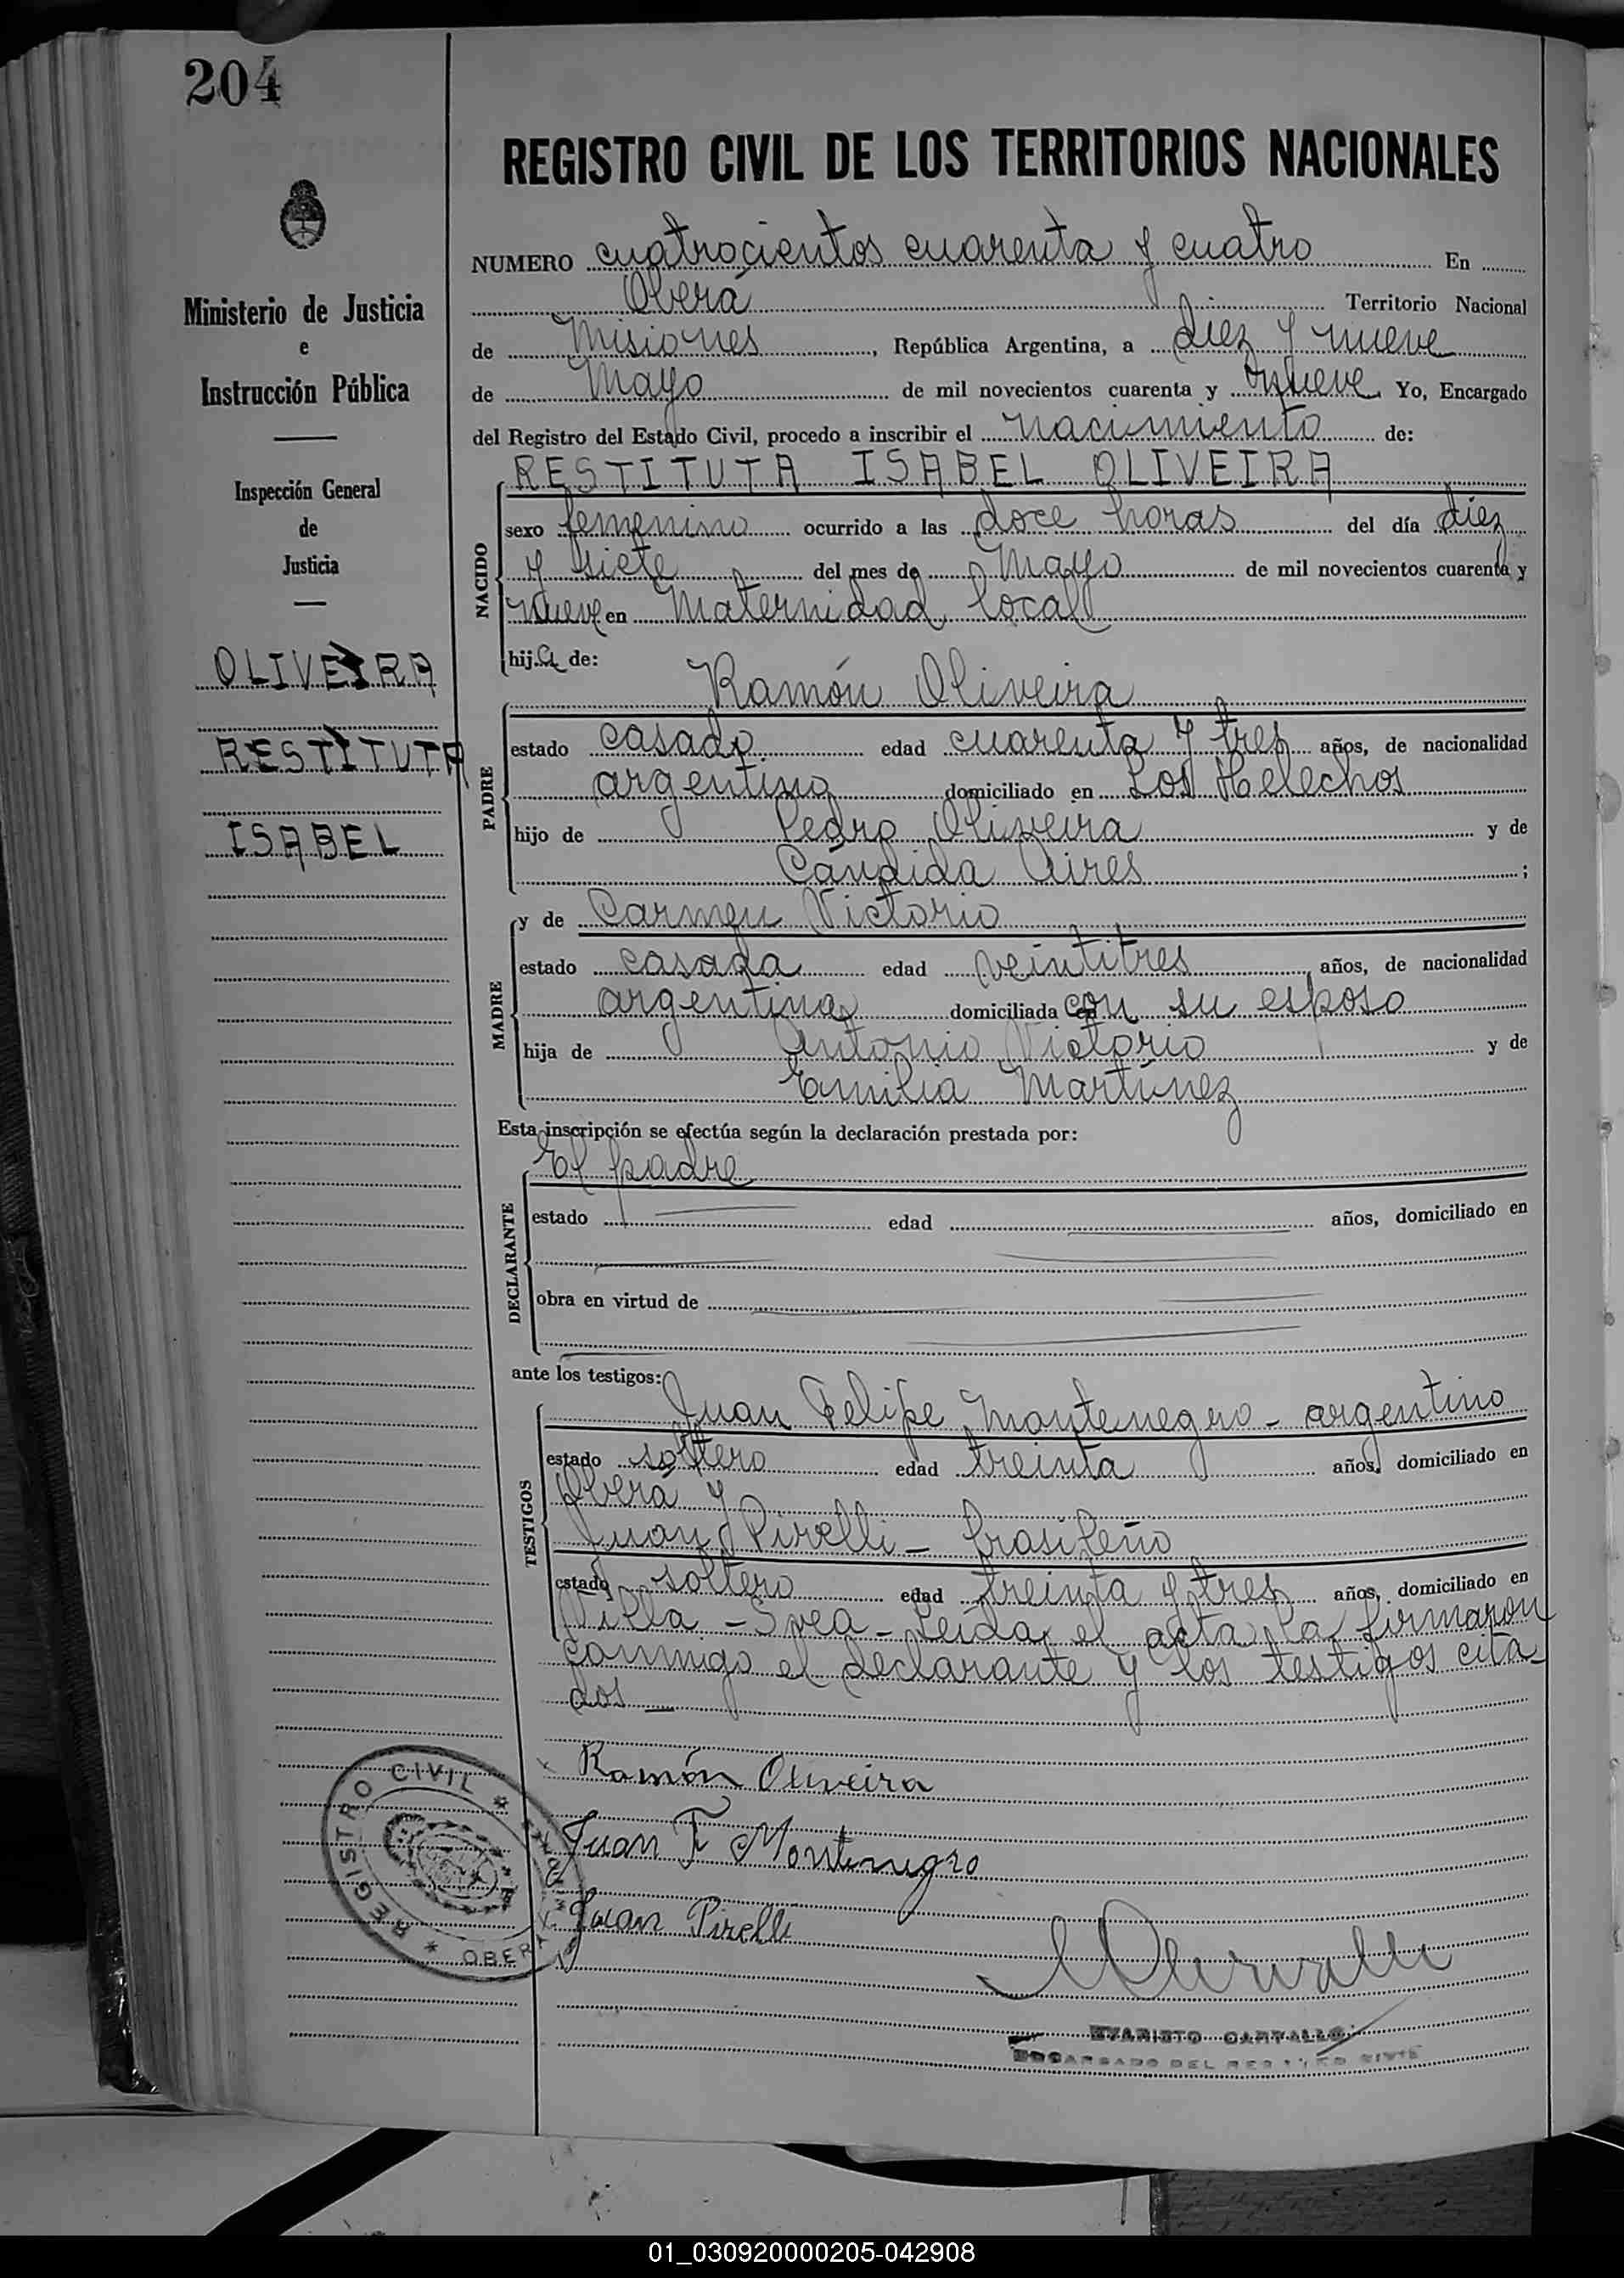 204
REGISTRO CIVIL DE LOS TERRITORIOS NACIONALES
Ministerio de Justicia
e
Instrucción Pública
Inspección General
de
Justicia
OLIVEIRA
RESTITUTA
ISABEL
NUMERO cuatrocientos cuarenta y cuatro En
Oberá Territorio Nacional
de Misiones, República Argentina, a diez y nueve
de Mayo de mil novecientos cuarenta y nueve Yo, Encargado
del Registro del Estado Civil, procedo a inscribir el nacimiento de:
RESTITUTA ISABEL OLIVEIRA
NACIDO
sexo femenino ocurrido a las doce horas del día diez
y siete del mes de Mayo de mil novecientos cuarenta y
nueve en Maternidad local
hija de:
Ramón Oliveira
PADRE
estado casado edad cuarenta y tres años, de nacionalidad
argentino domiciliado en Los Helechos
hijo de Pedro Oliveira y de
Cándida Aires ;
MADRE
y de Carmen Victorio
estado casada edad veintitres años, de nacionalidad
argentina domiciliada con su esposo
hija de Antonio Victorio y de
Emilia Martínez
Esta inscripción se efectúa según la declaración prestada por:
El padre
DECLARANTE
estado edad años, domiciliado en
obra en virtud de
ante los testigos:
Juan Felipe Montenegro - argentino
TESTIGOS
estado soltero edad treinta años, domiciliado en
Oberá y
Juan Pirelli - brasileño
estado soltero edad treinta y tres años, domiciliado en
Villa - Svea - Leída el acta la firmaron
conmigo el declarante y los testigos cita-
dos
Ramón Oliveira
Juan F Montenegro
Juan Pirelli
REGISTRO CIVIL
OBERA
EVARISTO CARVALLO
ENCARGADO DEL REGISTRO CIVIL
01_030920000205-042908